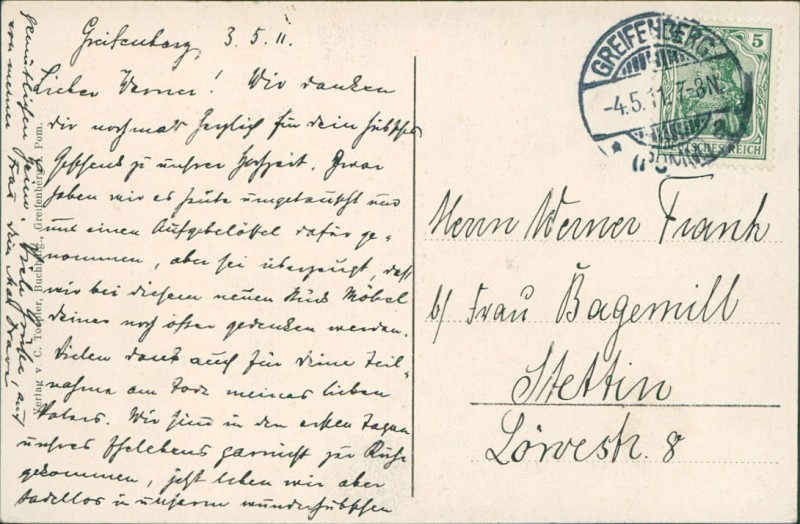 Greifenberg, 3.5.11.
Lieber Werner! Wir danken
dir nochmals herzlich für dein hübsches
Geschenk zu unsrer Hochzeit. Zwar
haben wir es heute umgetauscht und
uns einen Aufgebelöffel dafür ge-
nommen, aber sei überzeugt, daß
wir bei diesem neuen Stück Möbel
deiner noch öfter gedenken werden.
Vielen Dank auch für deine Teil-
nahme am Tode meines lieben
Vaters. Wir sind in den ersten Tagen
unsres Ehelebens garnicht zur Ruhe
gekommen, jetzt leben wir aber
tadellos in unserm wunderhübschen
gemütlichen Heim. Viele Grüße, auch
von meiner Frau, dein
Verlag v. C. Toepler, Buchhdlg., Greifenberg i. Pom.
GREIFENBERG
-4.5.11.7-8N.
(POMM)
5
DEUTSCHES REICH
Herrn Werner Frank
b/ Frau Bagemill
Stettin
Löwestr. 8